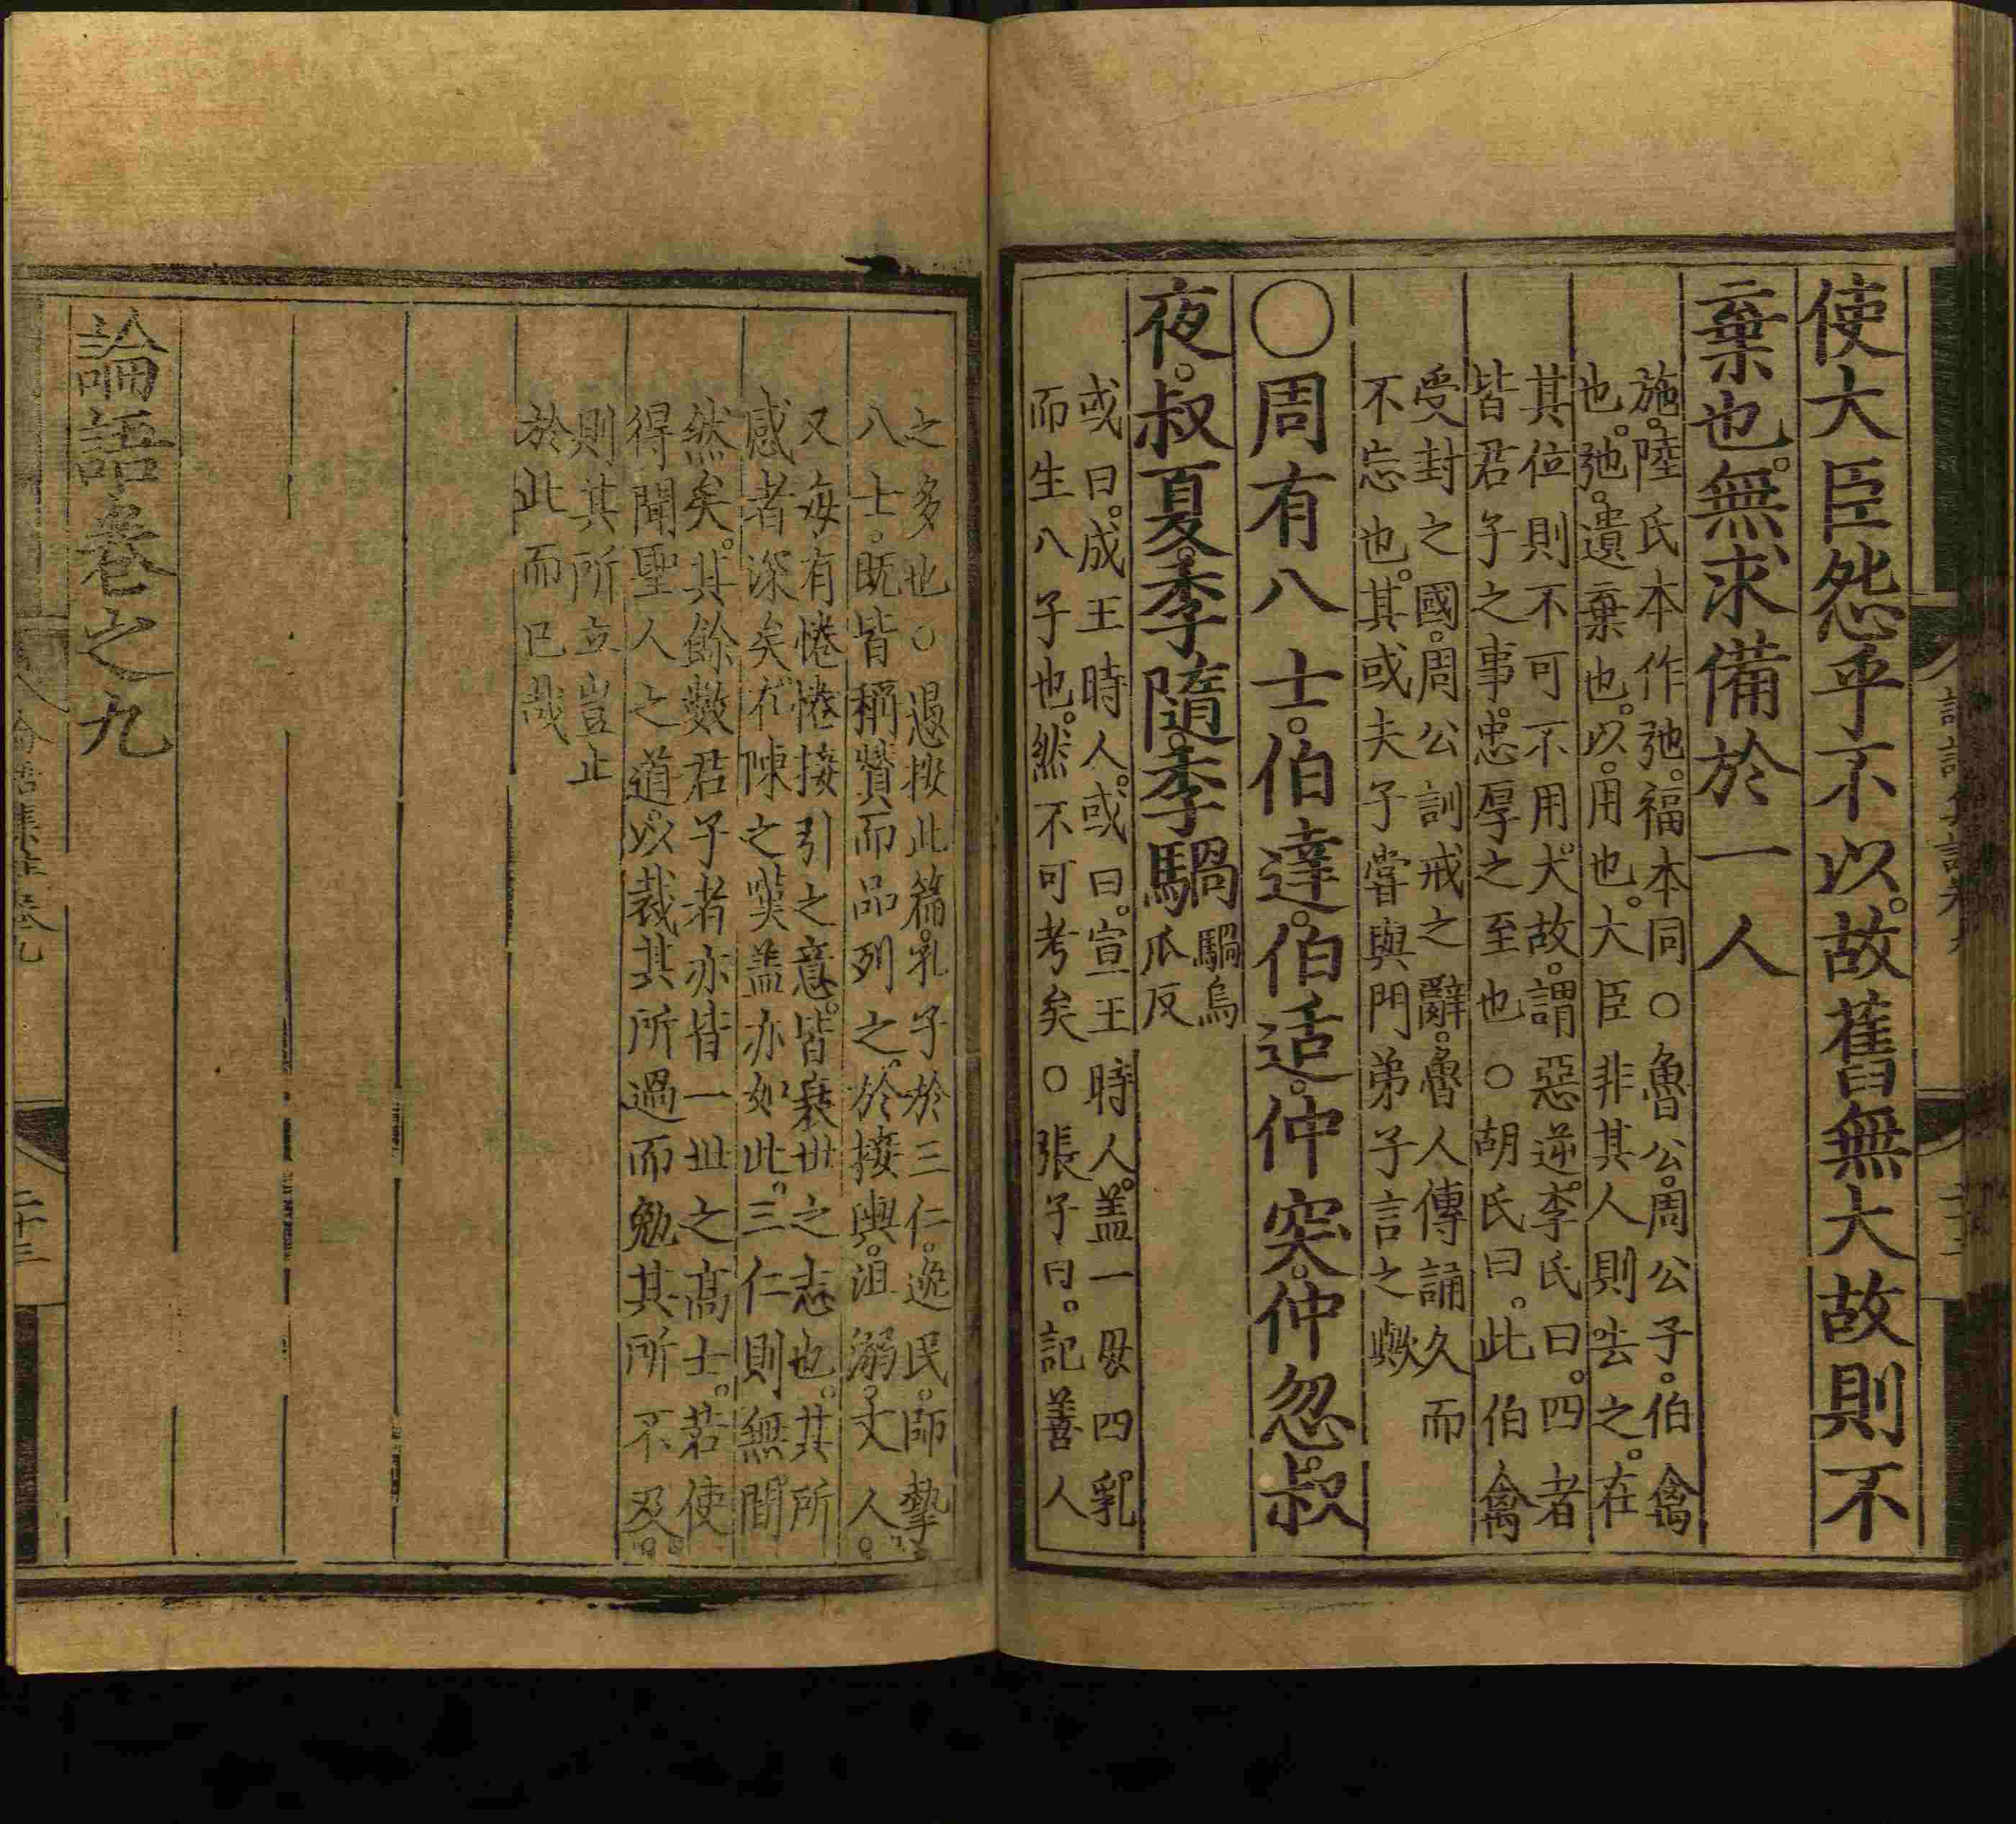 使大臣怨乎不以。故舊無大故則不
棄也。無求備於一人
施。陸氏本作弛。福本同○魯公。周公子。伯禽
也。弛。遺棄也。以。用也。大臣非其人則去之。在
其位則不可不用。大故。謂惡逆。李氏曰。四者
皆君子之事。忠厚之至也○胡氏曰。此伯禽
受封之國。周公訓戒之辭。魯人傳誦久而
不忘也。其或夫子嘗與門弟子言之歟
○周有八士。伯達。伯适。仲突。仲忽。叔
夜。叔夏。季隨。季騧
騧烏
瓜反
或曰。成王時人。或曰。宣王時人。盖一母四乳
而生八子也。然不可考矣○張子曰。記善人
之多也○愚按此篇。孔子於三仁。逸民。師摯。
八士。既皆稱贊而品列之。於接輿。沮溺。丈人。
又每有惓惓接引之意。皆衰世之志也。其所
感者深矣。在陳之嘆。盖亦如此。三仁則無間
然矣。其餘數君子者亦皆一世之高士。若使
得聞聖人之道。以裁其所過而勉其所不及。
則其所立豈止
於此而已哉
論語卷之九
二十三